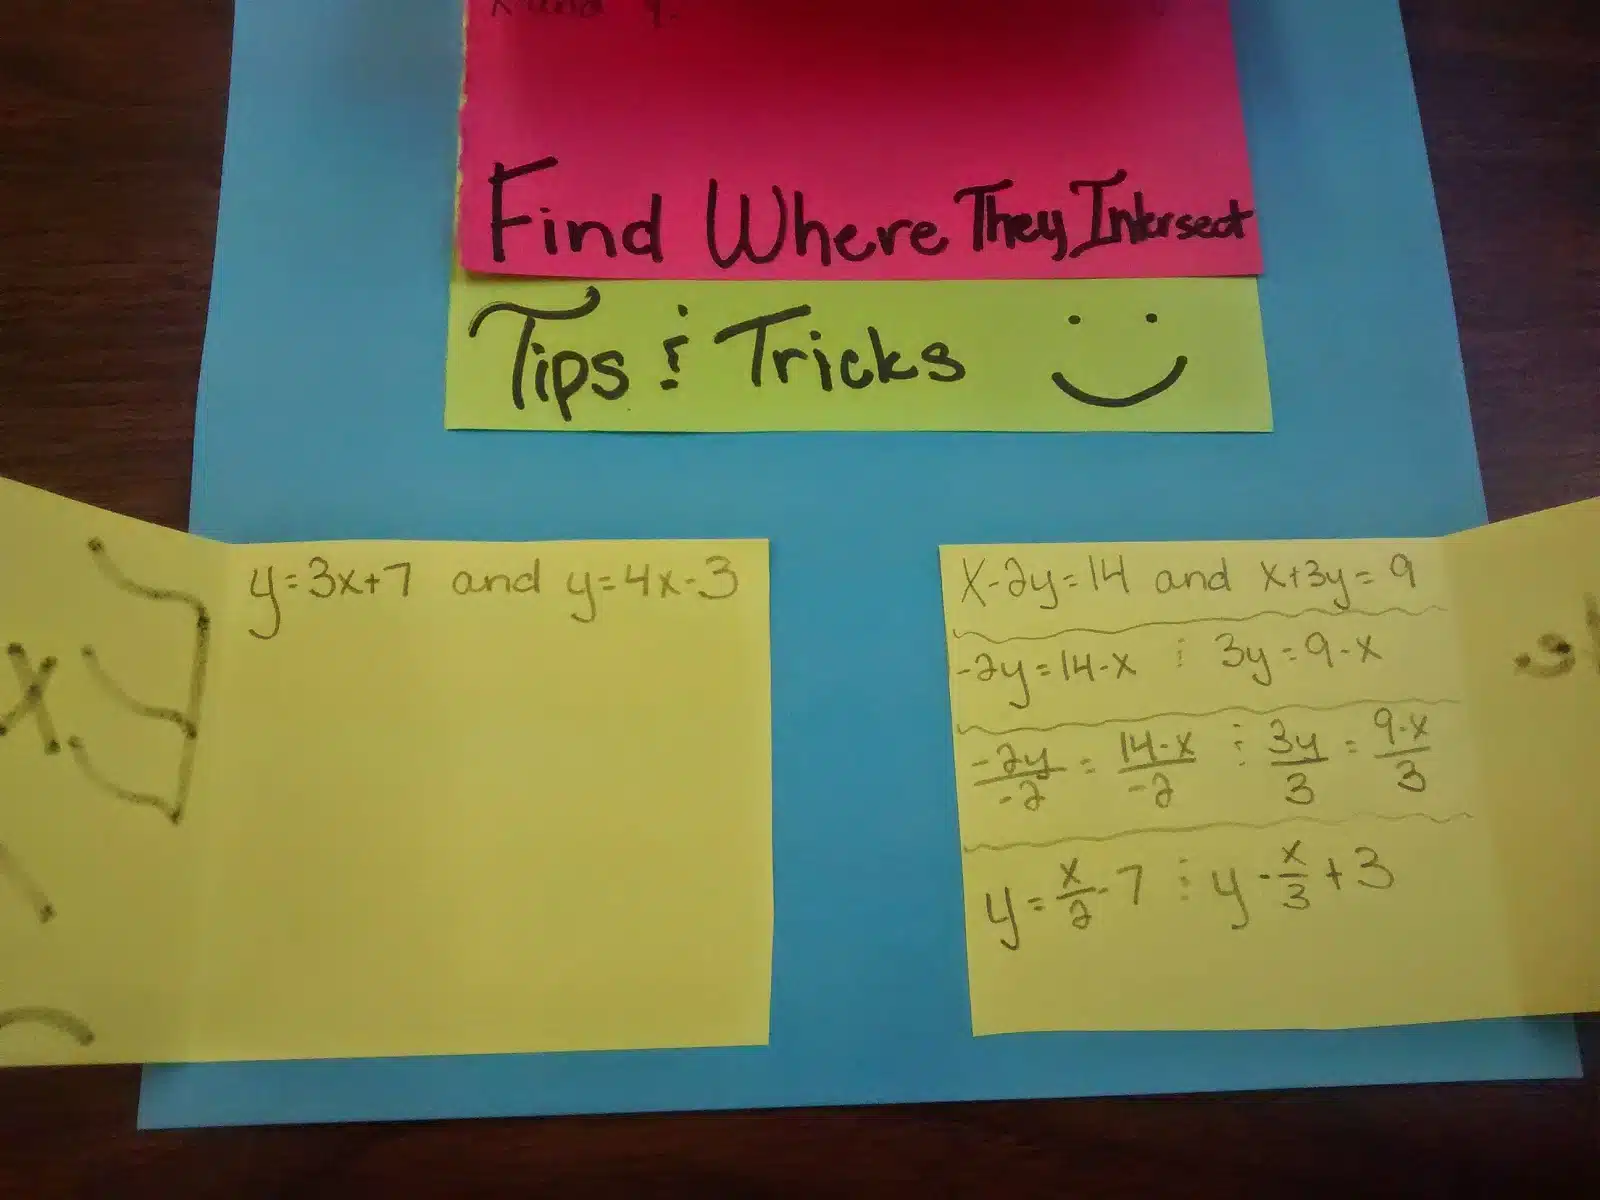 x and y.
Find Where They Intersect
Tips & Tricks
y=3x+7 and y=4x-3
x-2y=14 and x+3y=9
-2y=14-x & 3y=9-x
-2y/-2 = 14-x/-2 & 3y/3 = 9-x/3
y=x/2-7 & y-x/3+3
x